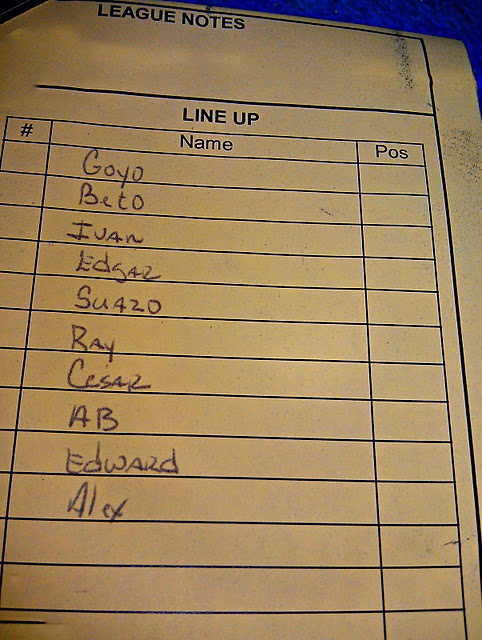 LEAGUE NOTES
LINE UP
# Name Pos
Goyo
Beto
Ivan
Edgar
Suazo
Ray
Cesar
AB
Edward
Alex